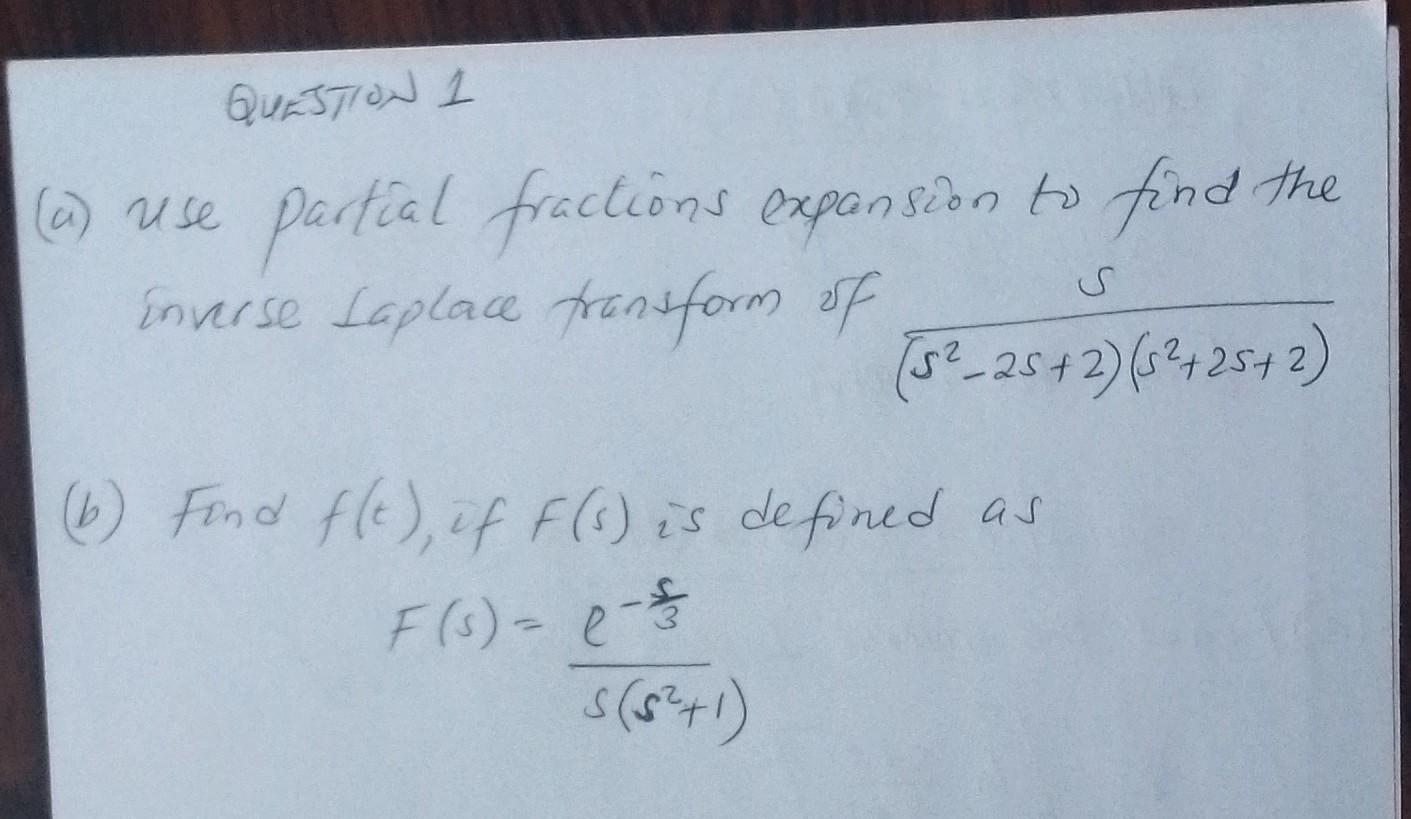 QUESTION 1
(a) use partial fractions expansion to find the
inverse Laplace transform of s/((s²-2s+2)(s²+2s+2))
(b) Find f(t), if F(s) is defined as
F(s) = e^(-s/3)/(s(s²+1))